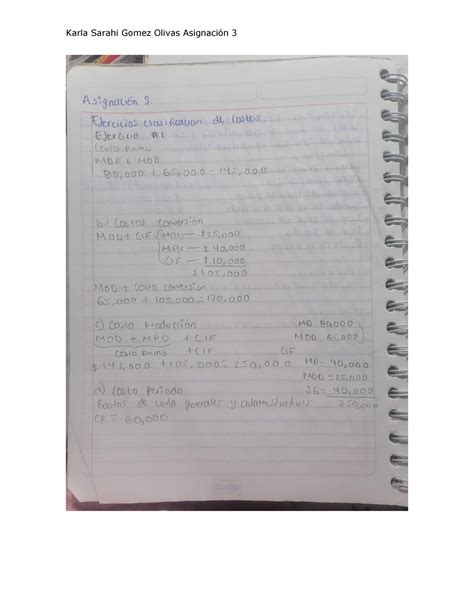 Karla Sarahi Gomez Olivas Asignación 3
Asignación 3.
Ejercicios clasificacion de costos.
Ejercicio #1
Costo primo
MDE + MOD
80,000 + 65,000 = 145,000
b) Costos conversión
MOD + CIF MOI — $25,000
MPI — $40,000
CIF — $10,000
$105,000
MOD + Costo conversion
65,000 + 105,000 = 170,000
c) Costo Producción MD 80,000
MOD + MPD + CIF MOD 65,000
Costo primo + CIF CIF
$145,000 + 105,000 = 250,000 MD = 40,000
MOD = 25,000
d) Costo Periodo 40,000
Gastos de venta generales y administrativos 250,000
CP = 60,000